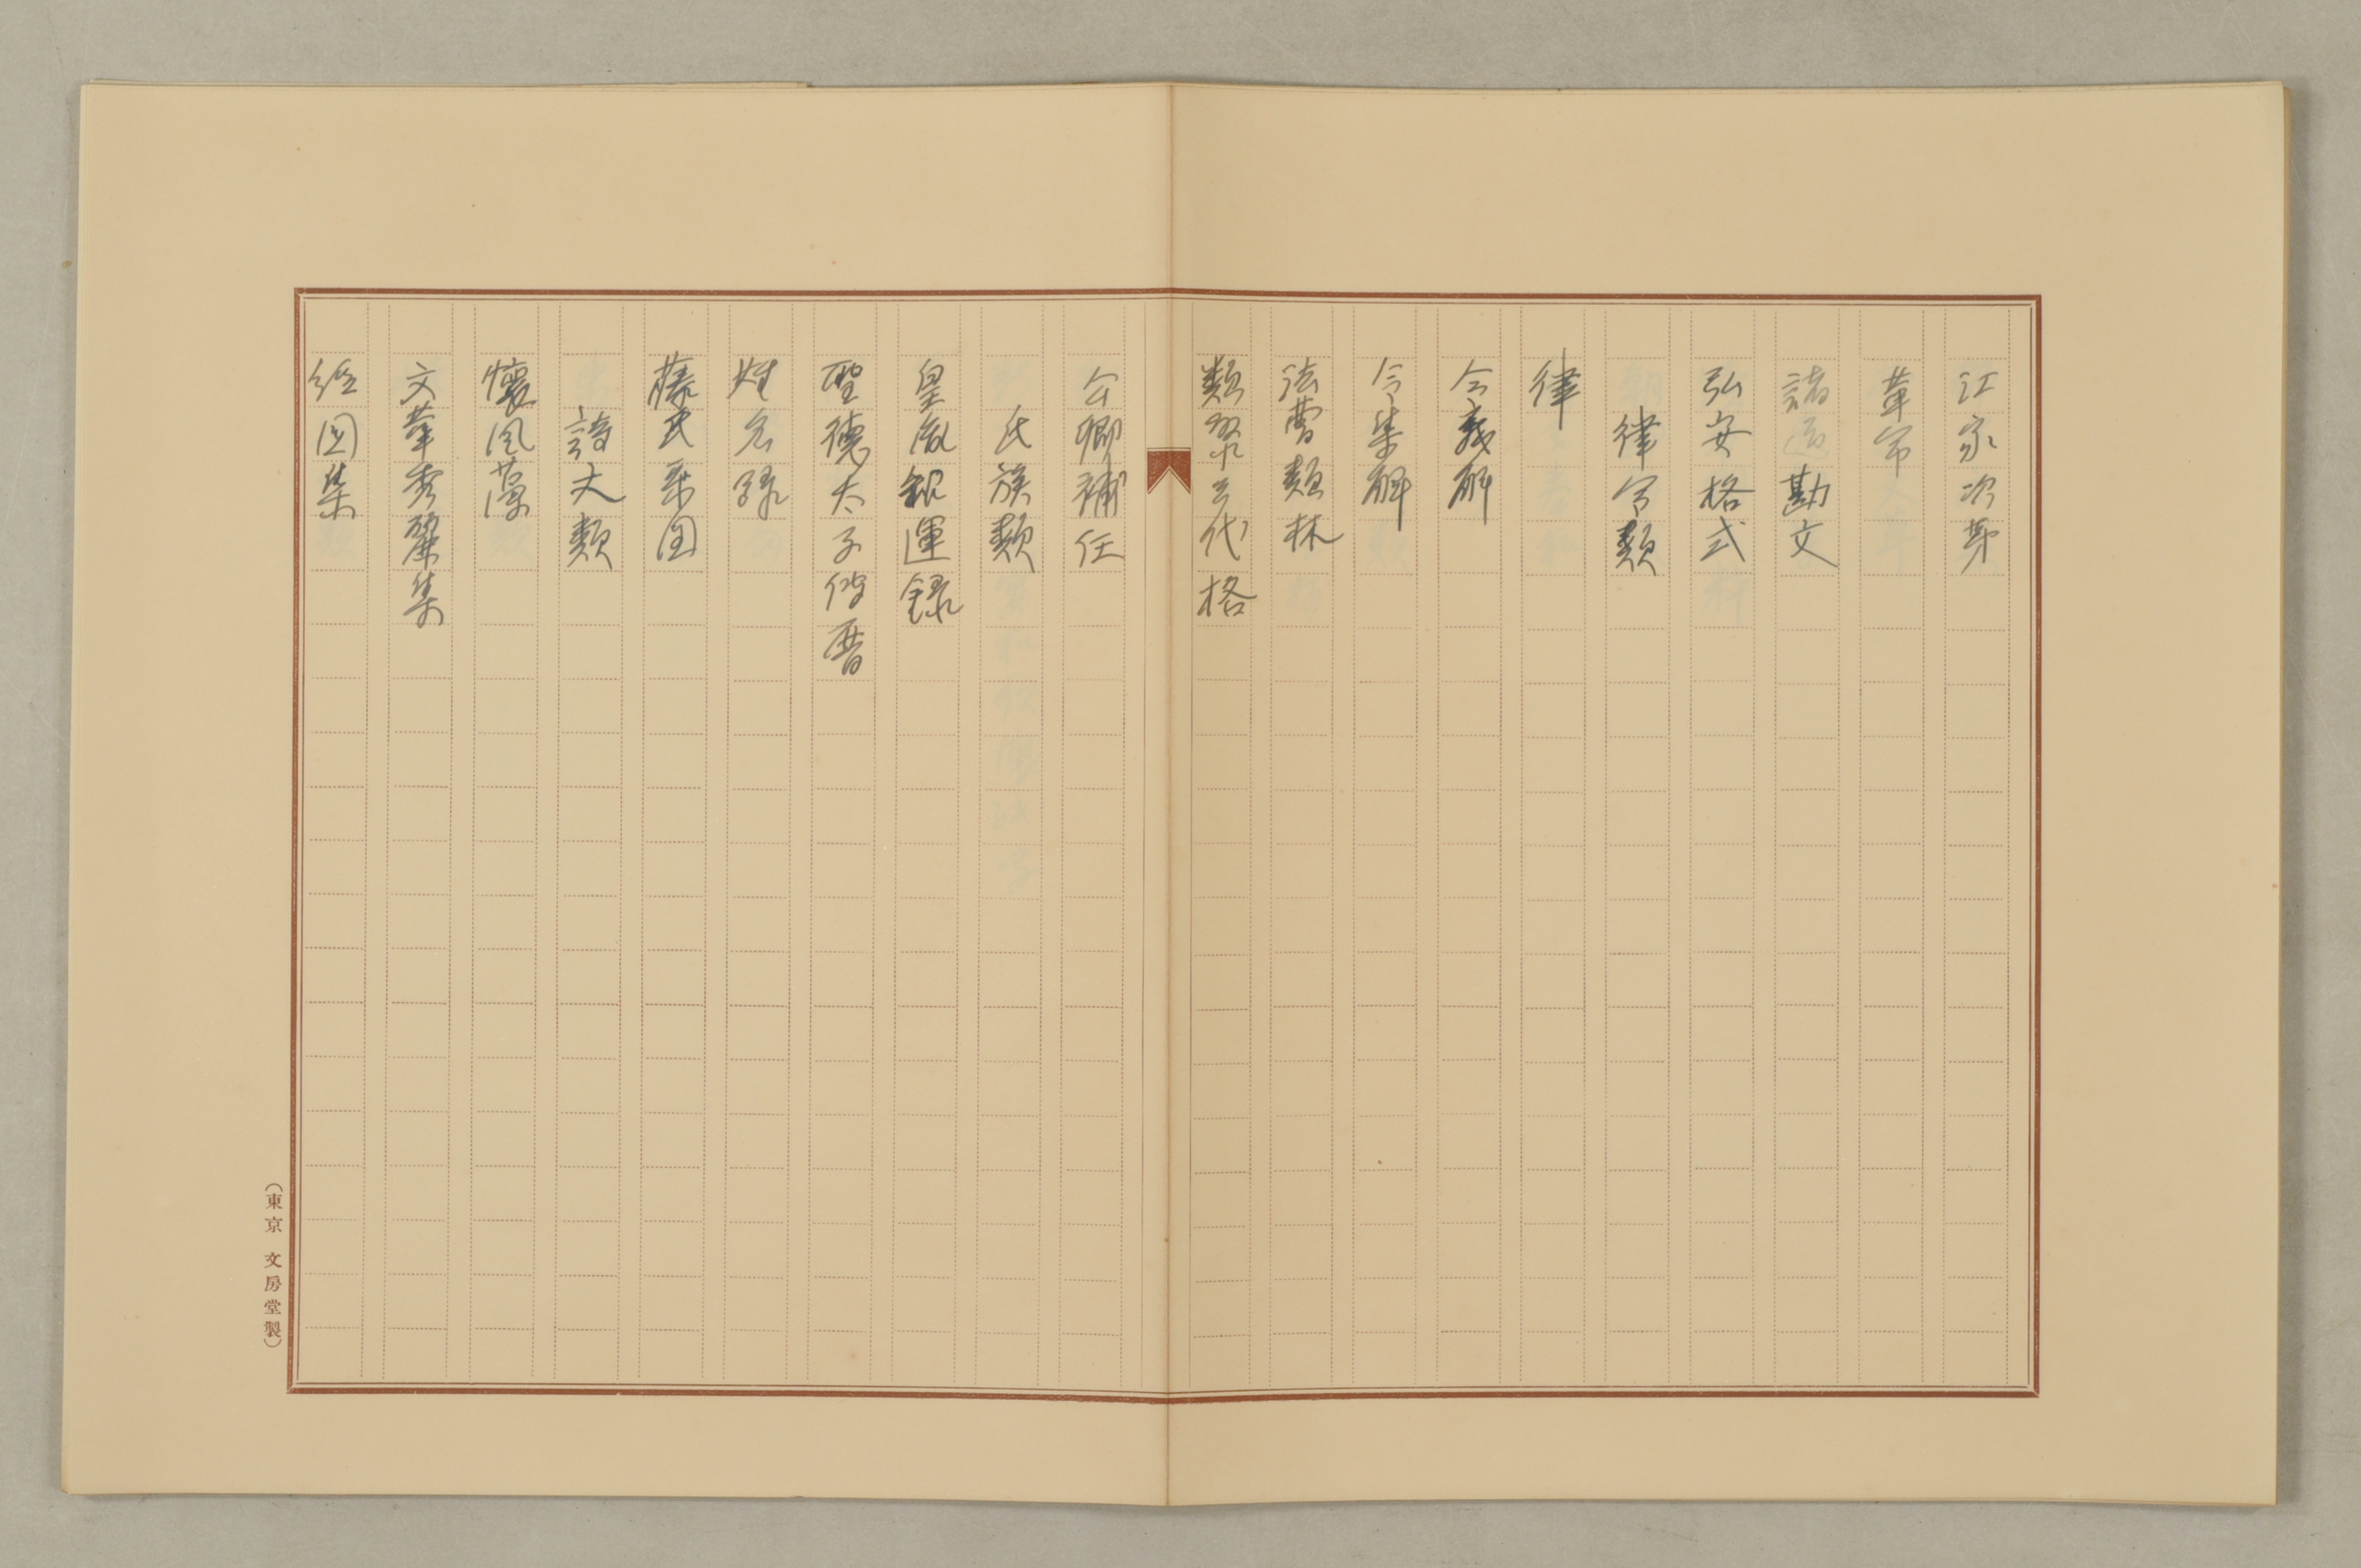 江家次第
葦帘
諸道勘文
弘安格式
律令類
律
令義解
令集解
法曹類林
類聚三代格
公卿補任
氏族類
皇胤紹運録
聖徳太子伝暦
姓名録
藤氏系図
詩文類
懐風藻
文華秀麗集
経国集
(東京 文房堂製)